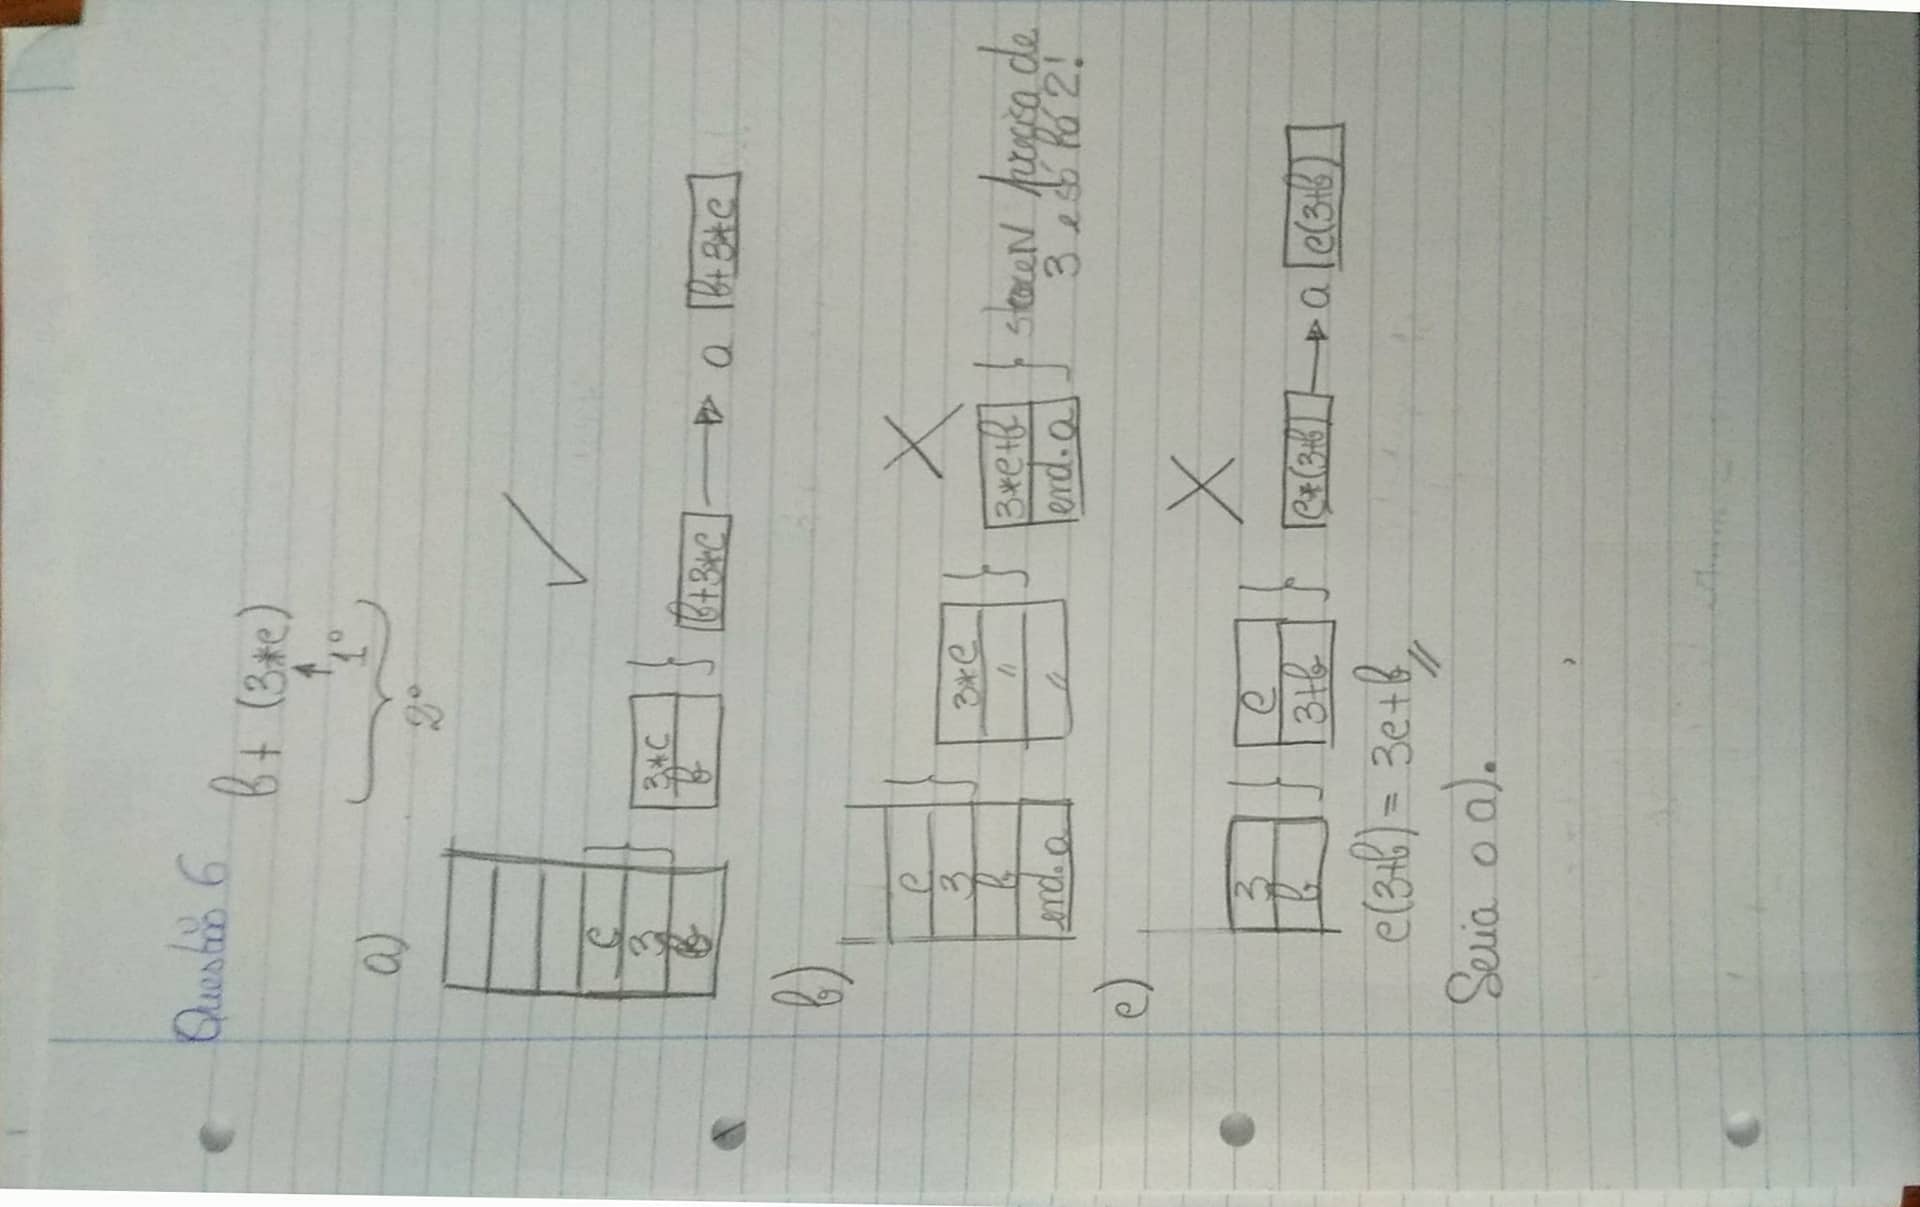 Questão 6
b + (3*c)
1º
2º
a)
c
3
b
3*c
b
b+3*c
a
b+3*c
b)
c
3
b
end. a
3*c
"
"
3*c+b
end. a
storeN precisa de
3 e só há 2!
c)
3
b
c
3+b
c*(3+b)
a
c(3+b)
c(3+b) = 3c+b //
Seria o a).